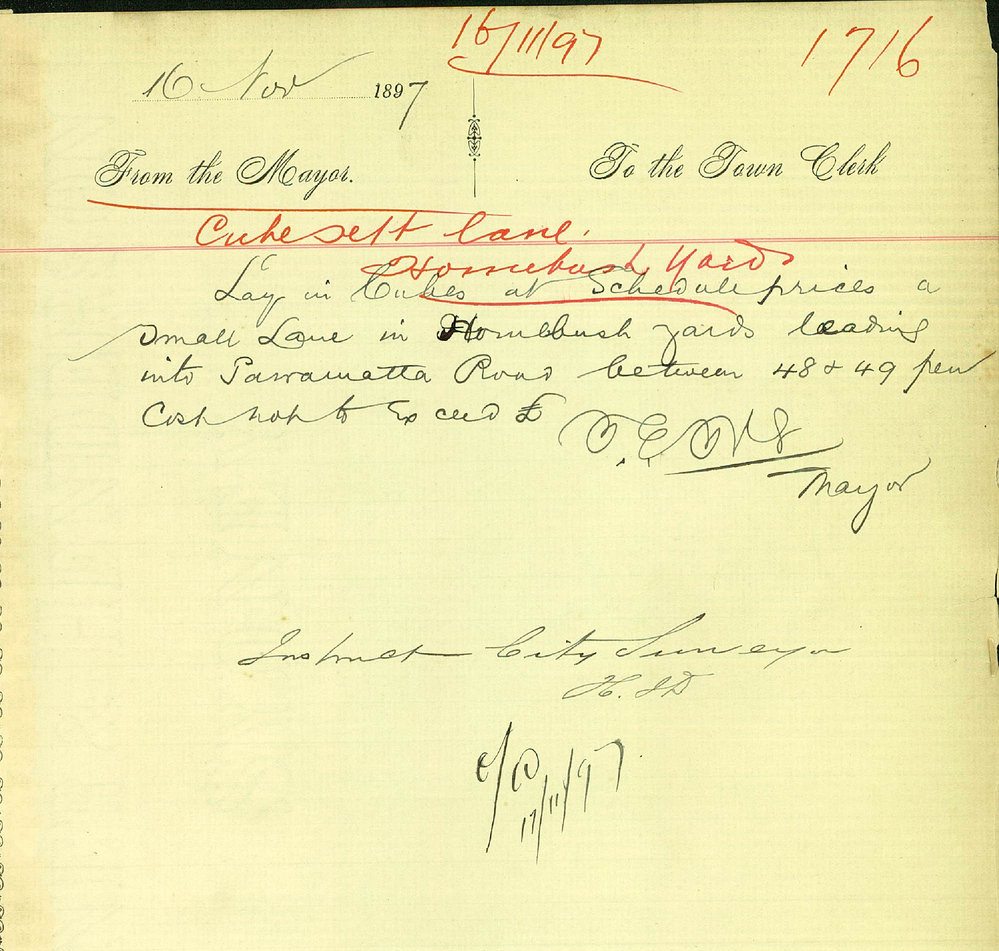 16/11/97
1716
16 Nov 1897
From the Mayor.
To the Town Clerk
Cube sett Lane.
Homebush Yards
Lay in Cubes at Schedule prices a
small Lane in Homebush yards leading
into Parramatta Road between 48 & 49 pen
Cost not to exceed £
Mayor
Instruct City Surveyor
17/11/97